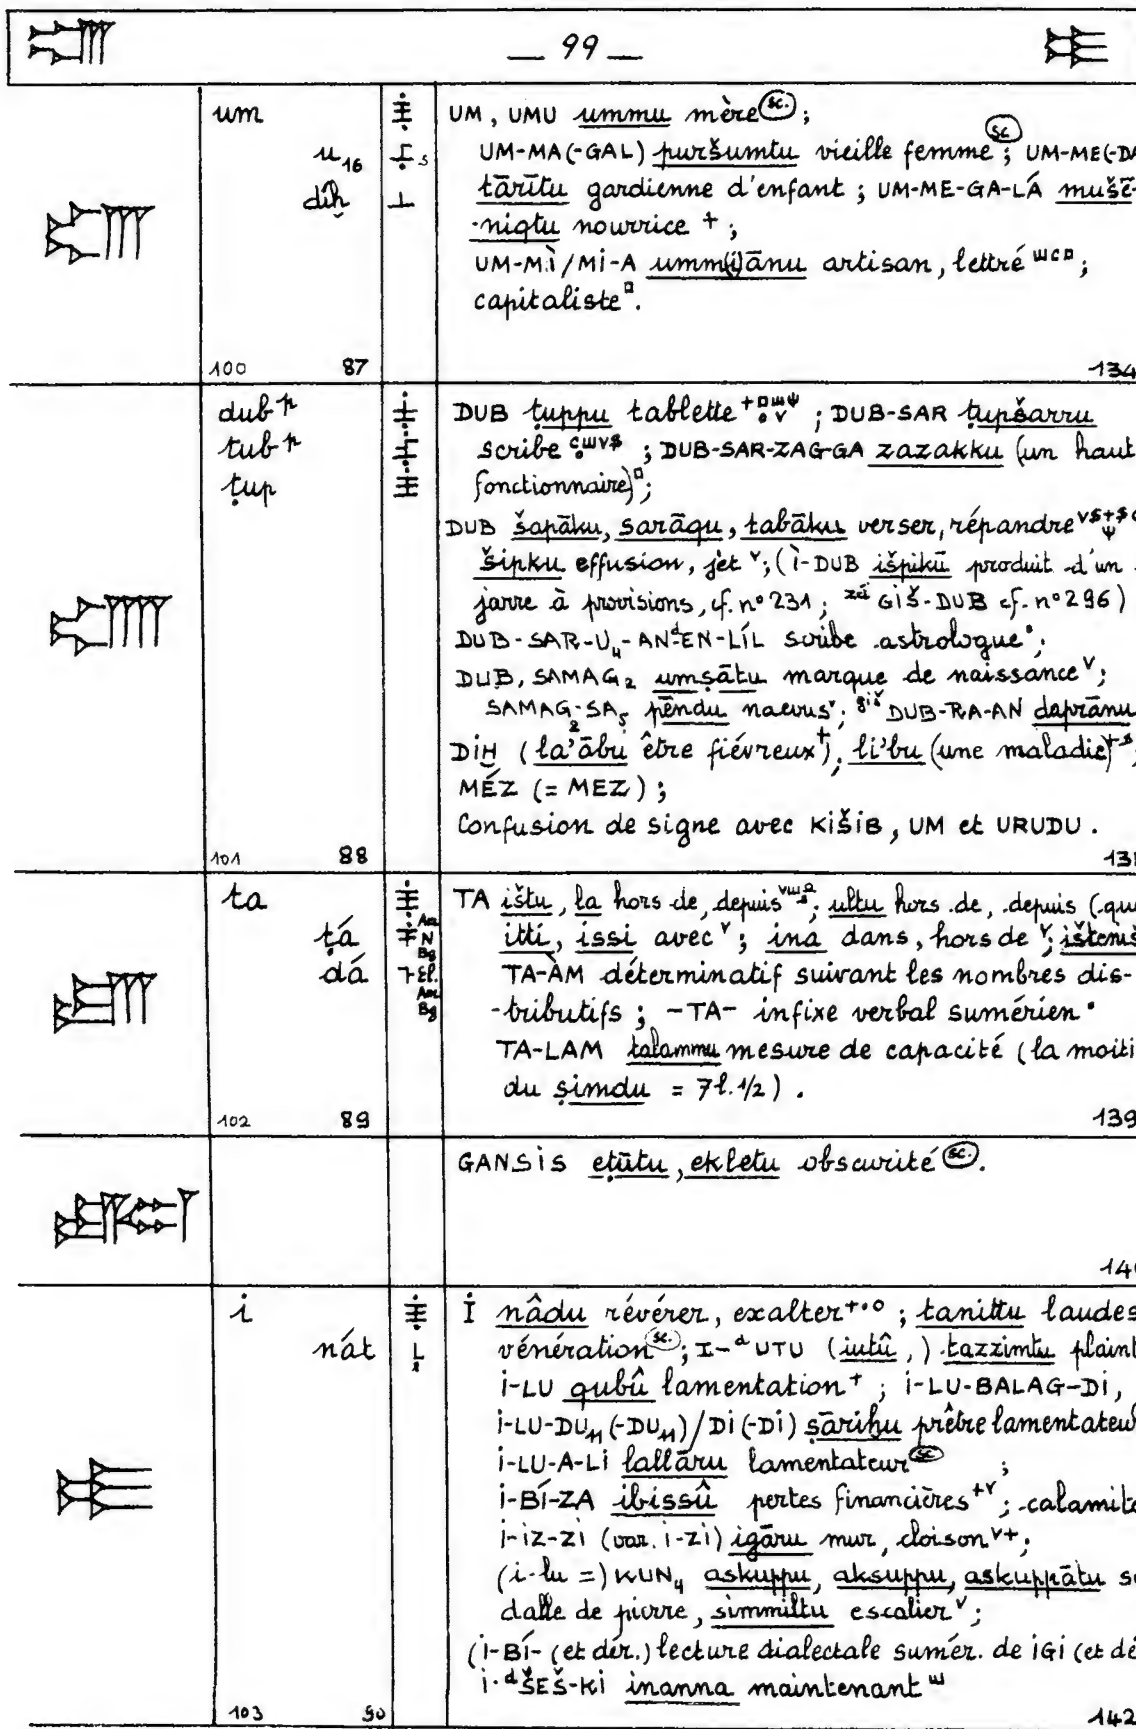 — 99 —
um
u₁₆
díḫ
UM, UMU ummu mère (sc.);
UM-MA(-GAL) puršumtu vieille femme (sc); UM-ME(-DA
tārītu gardienne d'enfant ; UM-ME-GA-LÁ mušē-
-niqtu nourrice + ;
UM-MÌ/MI-A umm(i)ānu artisan, lettré ;
capitaliste .
100 87 134
dub p
tub p
ṭup
DUB ṭuppu tablette ; DUB-SAR ṭupšarru
scribe ; DUB-SAR-ZAG-GA zazakku (un haut
fonctionnaire) ;
DUB šapāku, sarāqu, tabāku verser, répandre
šipku effusion, jet v ; (Ì-DUB išpikū produit d'un
jarre à provisions, cf. n° 231 ; zá GIŠ-DUB cf. n° 296)
DUB-SAR-U₄-AN d EN-LÍL scribe astrologue ;
DUB, SAMAG₂ umṣātu marque de naissance v ;
SAMAG₂-SA₅ pēndu naevus v ; giš DUB-RA-AN daprānu
DIḪ (la'ābu être fiévreux +), li'bu (une maladie) ;
MÉZ (= MEZ) ;
Confusion de signe avec KIŠIB, UM et URUDU .
101 88 13
ta
ṭá
dá
Am N Bg
El. Am Bg
TA ištu, la hors de, depuis ; ultu hors de, depuis (que
itti, issi avec v ; ina dans, hors de v ; išteniš
TA-ÀM déterminatif suivant les nombres dis-
-tributifs ; -TA- infixe verbal sumérien •
TA-LAM talammu mesure de capacité (la moiti
du ṣimdu = 7 l. 1/2) .
102 89 139
GANSIS eṭūtu, ekletu obscurité (sc.).
14
i
nát
I nâdu révérer, exalter ; tanittu laudes
vénération (sc.) ; I-d UTU (iutû,) tazzimtu plaint
I-LU qubû lamentation + ; I-LU-BALAG-DI,
I-LU-DU₁₁(-DU₁₁)/DI(-DI) ṣāriḫu prêtre lamentateur
I-LU-A-LI lallāru lamentateur (sc) ;
I-BÍ-ZA ibissû pertes financières +v ; calamité
I-IZ-ZI (var. I-ZI) igāru mur, cloison v+ ;
(i-lu =) KUN₄ askuppu, aksuppu, askuppātu
dalle de pierre, simmiltu escalier v ;
(I-BÍ- (et dér.) lecture dialectale sumér. de IGI (et dé
I-d ŠEŠ-KI inanna maintenant
103 90 142